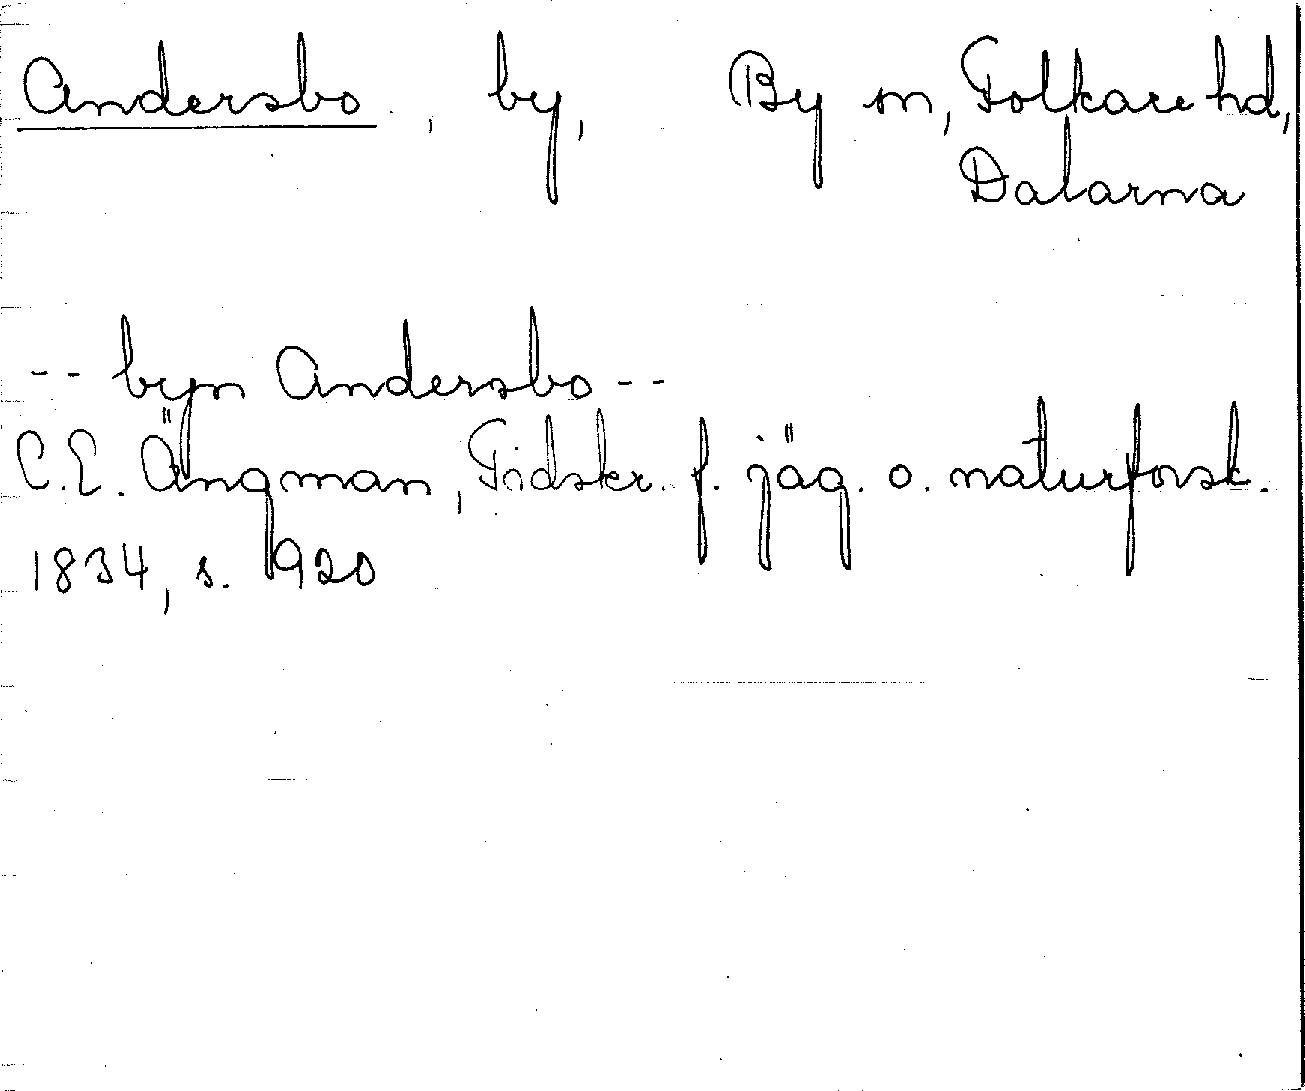 Andersbo, by, By sn, Folkare hd,
Dalarna
-- byn Andersbo --
C.E. Ängman, Tidskr. f. jäg. o. naturforsk.
1834, s. 920